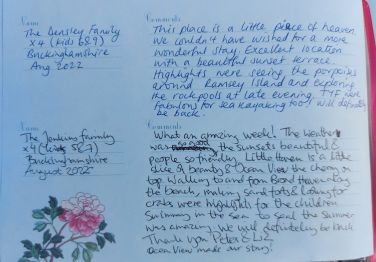 Name
The Densley Family
x 4 (kids 6&9)
Buckinghamshire
Aug 2022
Comments
This place is a little piece of heaven.
We couldn't have wished for a more
wonderful stay. Excellent location
with a beautiful sunset terrace.
Highlights were seeing the porpoises
around Ramsey Island and exploring
the rockpools at late evening.
fabulous for sea kayaking too! Will definitely
be back.
Name
The Jenkins family
x4 (kids 5&7)
Buckinghamshire
August 2022
Comments
What an amazing week! The weather
was so good the sunsets beautiful &
people so friendly. Little Haven is a little
& Ocean View the cherry on
top. Walking to and from Broad Haven along
the beach, making sand forts & looking for
crabs were highlights for the children.
Swimming in the sea to seal the summer
was amazing. We will definitely be back.
Thank you Peter & Liz
Ocean View made our stay!